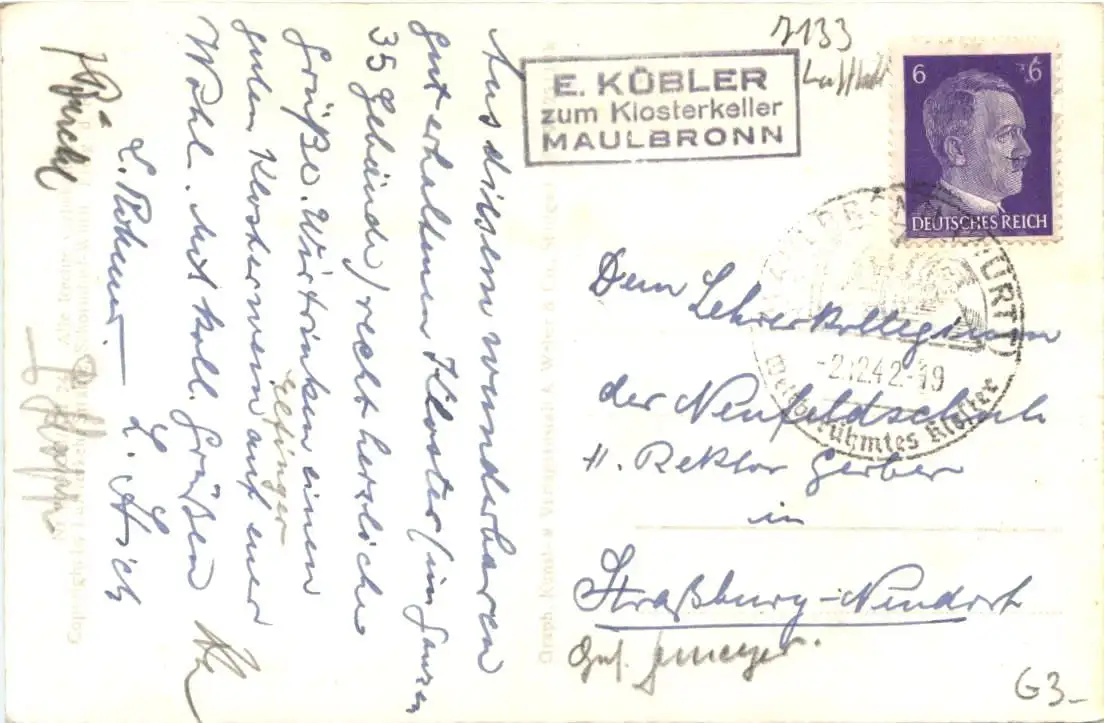 Aus diesem wunderbaren
gut erhaltenen Kloster (im ganzen
35 Gebäude) recht herzliche
Grüße. Wir trinken einen
Elfinger
guten Klosterwein auf euer
Wohl. Mit koll. Grüßen
L.
E. KÜBLER
zum Klosterkeller
MAULBRONN
7133
6 6
DEUTSCHES REICH
MAULBRONN (WÜRTT)
-2.12.42.-19
Weltberühmtes Kloster
Dem Lehrerkollegium
der Neufeldschule
H. Rektor Gerber
in
Straßburg-Neudorf
G3-